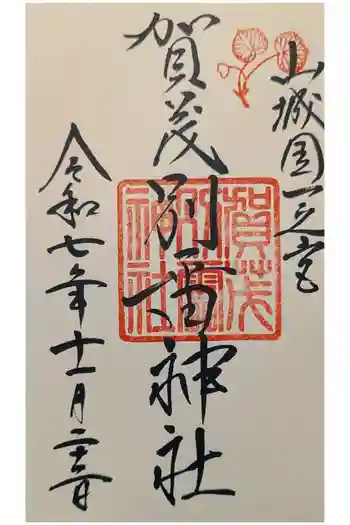 山城国一之宮
賀茂別雷神社
賀茂
別雷
神社
令和七年十一月